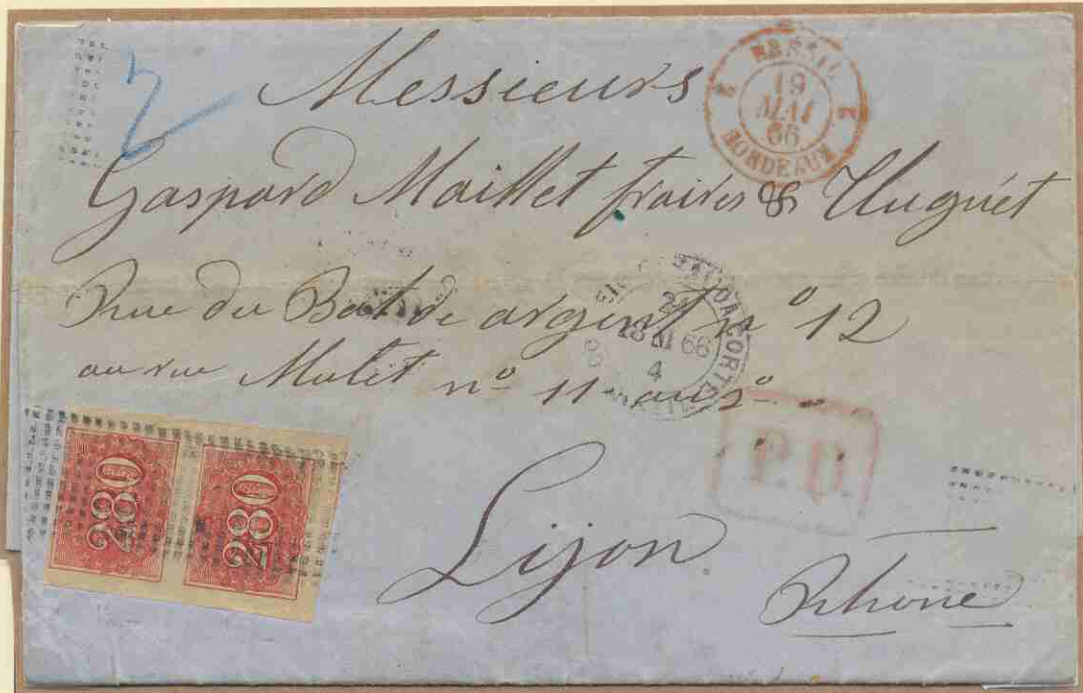 2
Messieurs
BRESIL 19 MAI 66 BORDEAUX 2 2
Gaspard Maillet fraires & Huguet
Rue du Bat de argent nº 12
au rue Mulet nº 11 au 2º
CORTE 24 66 4
P.D.
280 280
Lijon
Rhone